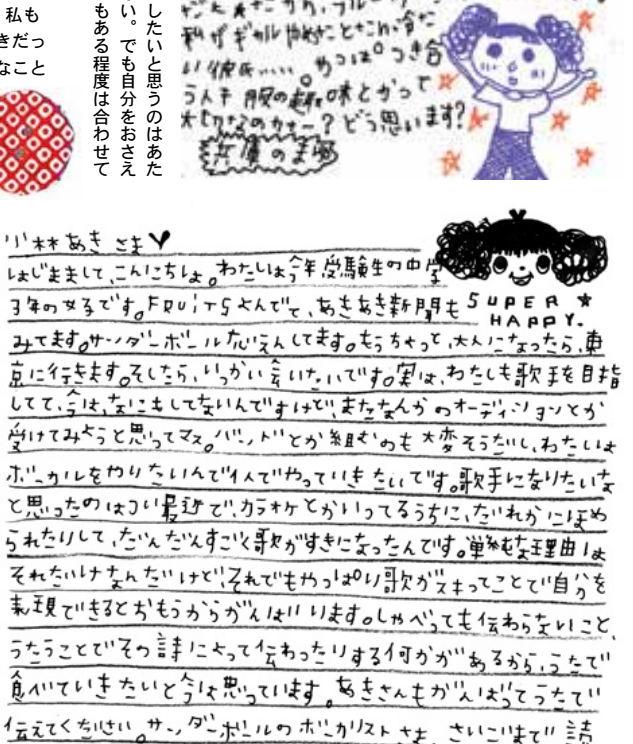 私も
きだっ
なこと
したいと思うのはあた
い。でも自分をおさえ
もある程度は合わせて
い彼氏…。やっぱつき合
う人チ 服の趣味とかって
大切なのカナー?どう思います?
SUPER ★
HAPPY.
小林あき さま♥
はじまして、こんにちは。わたしは今年受験生の中学
3年の女子です。FRUiTSよんでて、あきあき新聞も
みてます。サンダーボール応えんしてます。もうちょっと、大人になったら、東
京に行きます。そしたら、いっかい会いたいです。実は、わたしも歌手を目指
してて、今は、なにもしてないんですけど、またなんか のオーディションとか
受けてみようと思ってマス。バンドとか組むのも大変そうだし、わたしは
ボーカルをやりたいんで1人でやっていきたいです。歌手になりたいな
と思ったのはつい最近で、カラオケとかいってるうちに、だれかにほめ
られたりして、だんだんすごく歌がすきになったんです。単純な理由は
それだけなんだけど、それでもやっぱり歌がスキってことで自分を
表現できるとおもうからがんばります。しゃべっても伝わらないこと、
うたうことでその詩によって伝わったりする何かがあるから、うたで
食べていきたいと今は思っています。あきさんもがんばってうたで
伝えてください。サンダーボールのボーカリストさま、さいごまで読